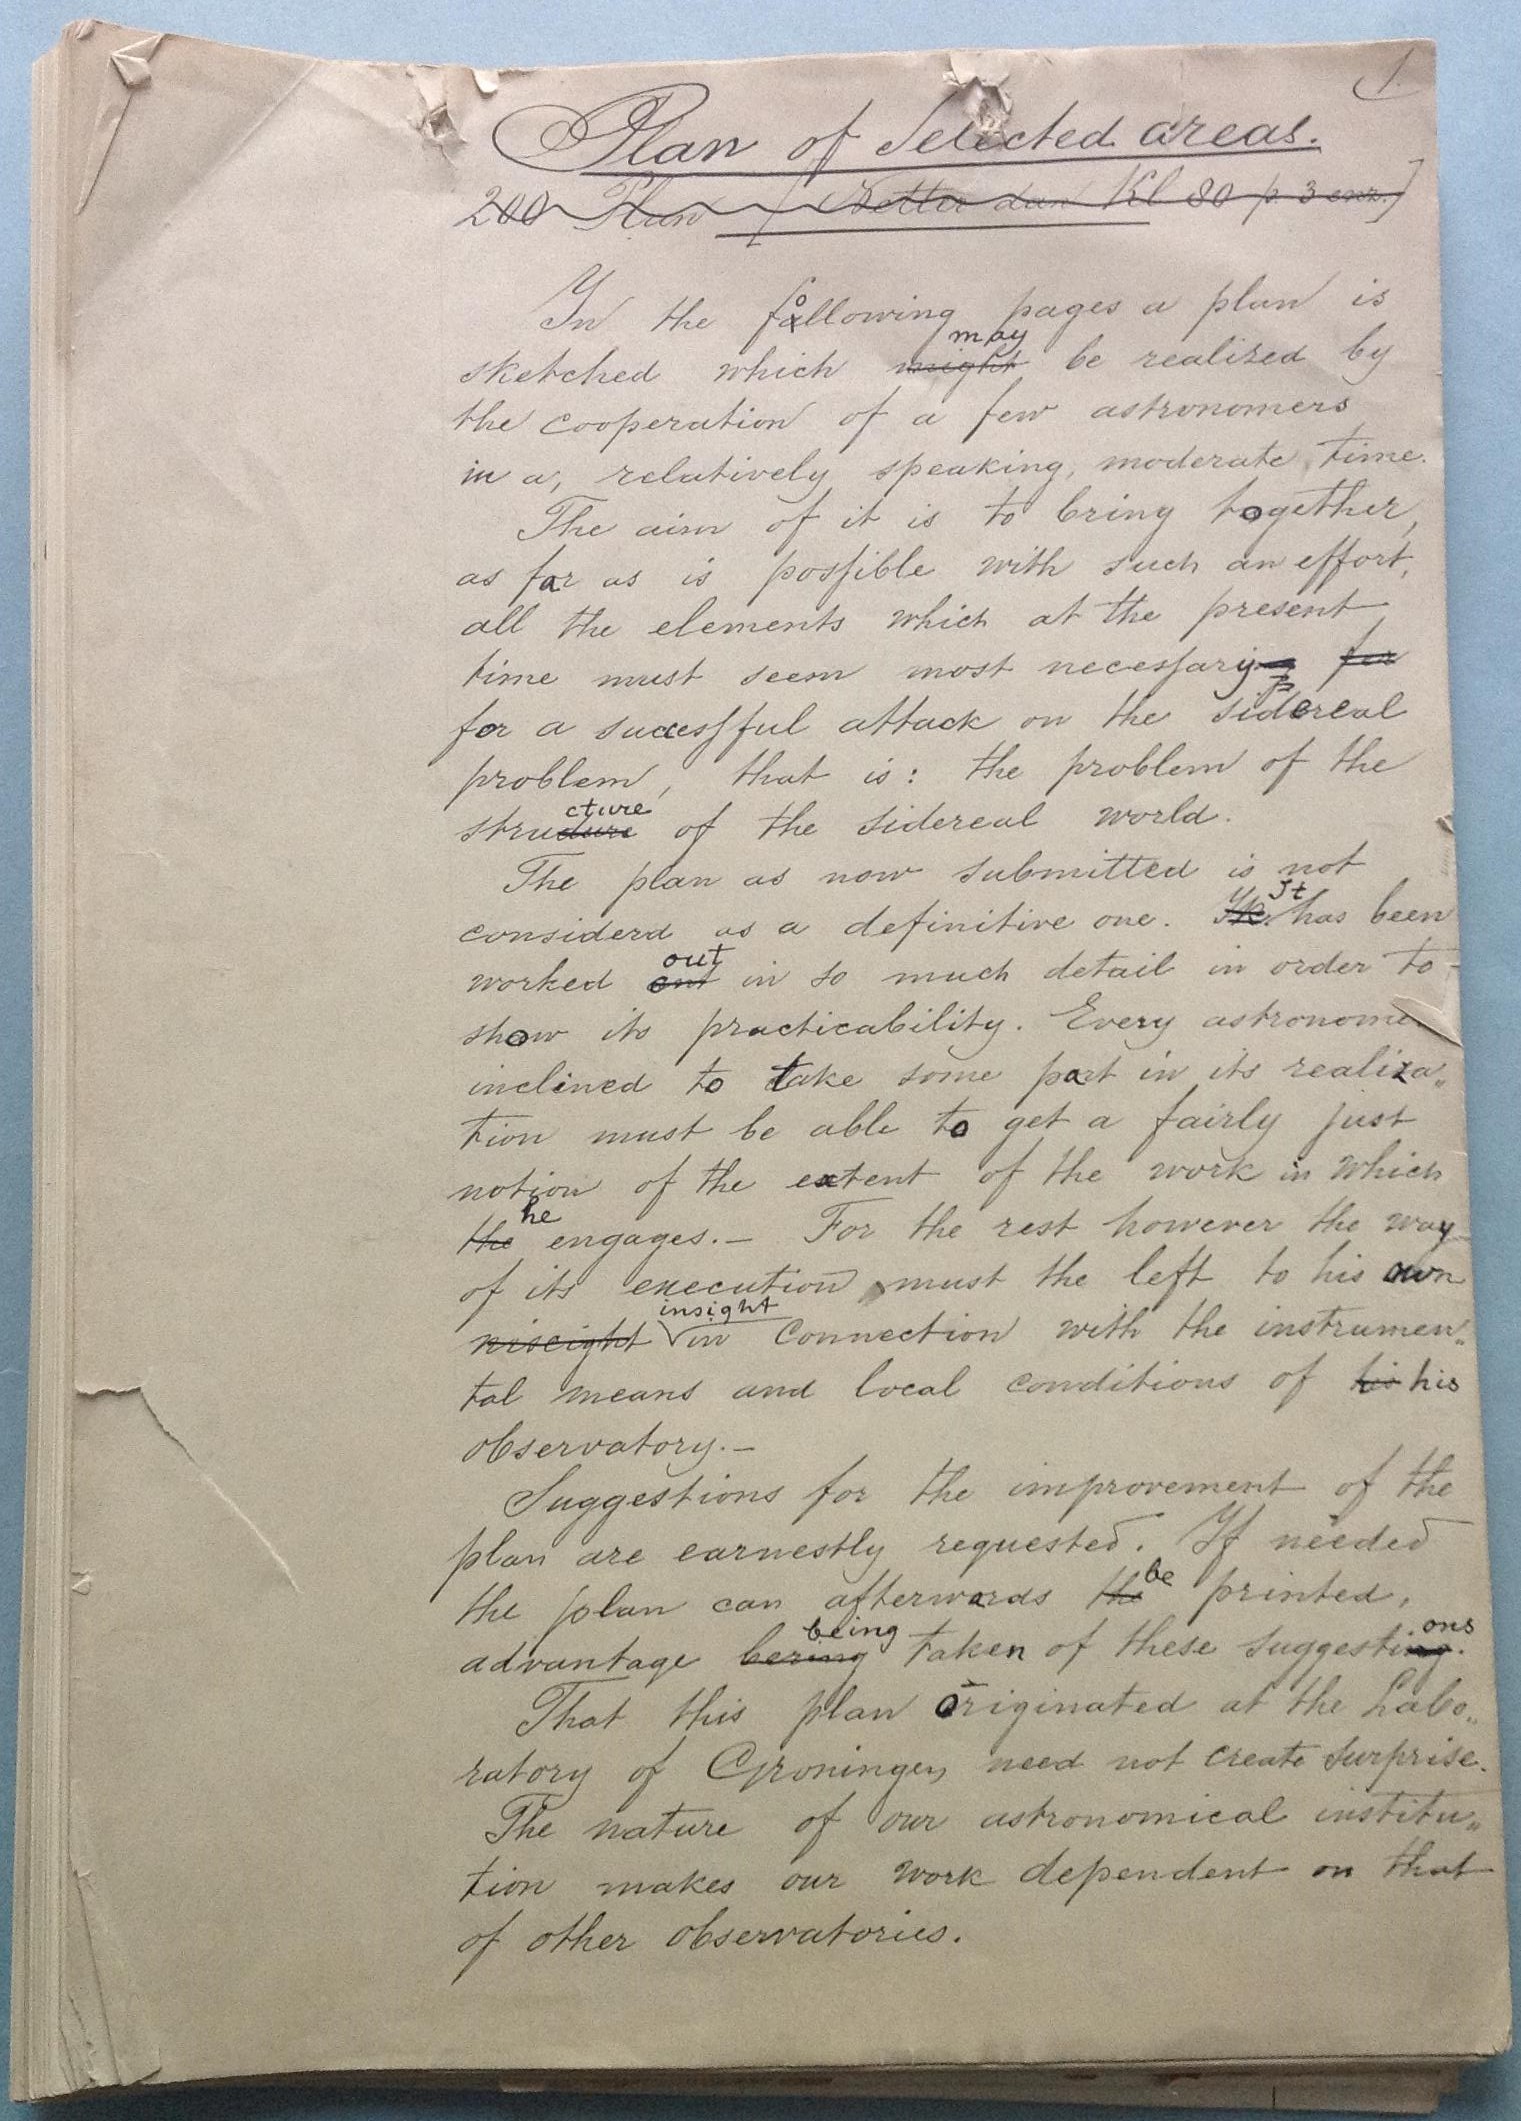 1.
Plan of Selected areas.
200 Plan [ Kl 80 p. 3 enz.]
In the following pages a plan is
may
sketched which might be realized by
the cooperation of a few astronomers
in a, relatively speaking, moderate time.
The aim of it is to bring together,
as far as is possible with such an effort,
all the elements which at the present
time must seem most necessary for
for a sucessful attack on the sidereal
problem, that is: the problem of the
cture
strudure of the sidereal world.
The plan as now submitted is not
It
considerd as a definitive one. has been
out
worked ont in so much detail in order to
show its practicability. Every astronomer
inclined to take some part in its realiza„
tion must be able to get a fairly just
notion of the extent of the work in which
he
the engages.— For the rest however the way
of its execution must the left to his own
insight
niscight in connection with the instrumen„
tal means and local conditions of his his
observatory.—
Suggestions for the improvement of the
plan are earnestly requested. If needed
be
the plan can afterwards the printed,
being ons
advantage bering taken of these suggesting.
That this plan originated at the Labo„
ratory of Groningen need not create surprise.
The nature of our astronomical institu„
tion makes our work dependent on that
of other observatories.